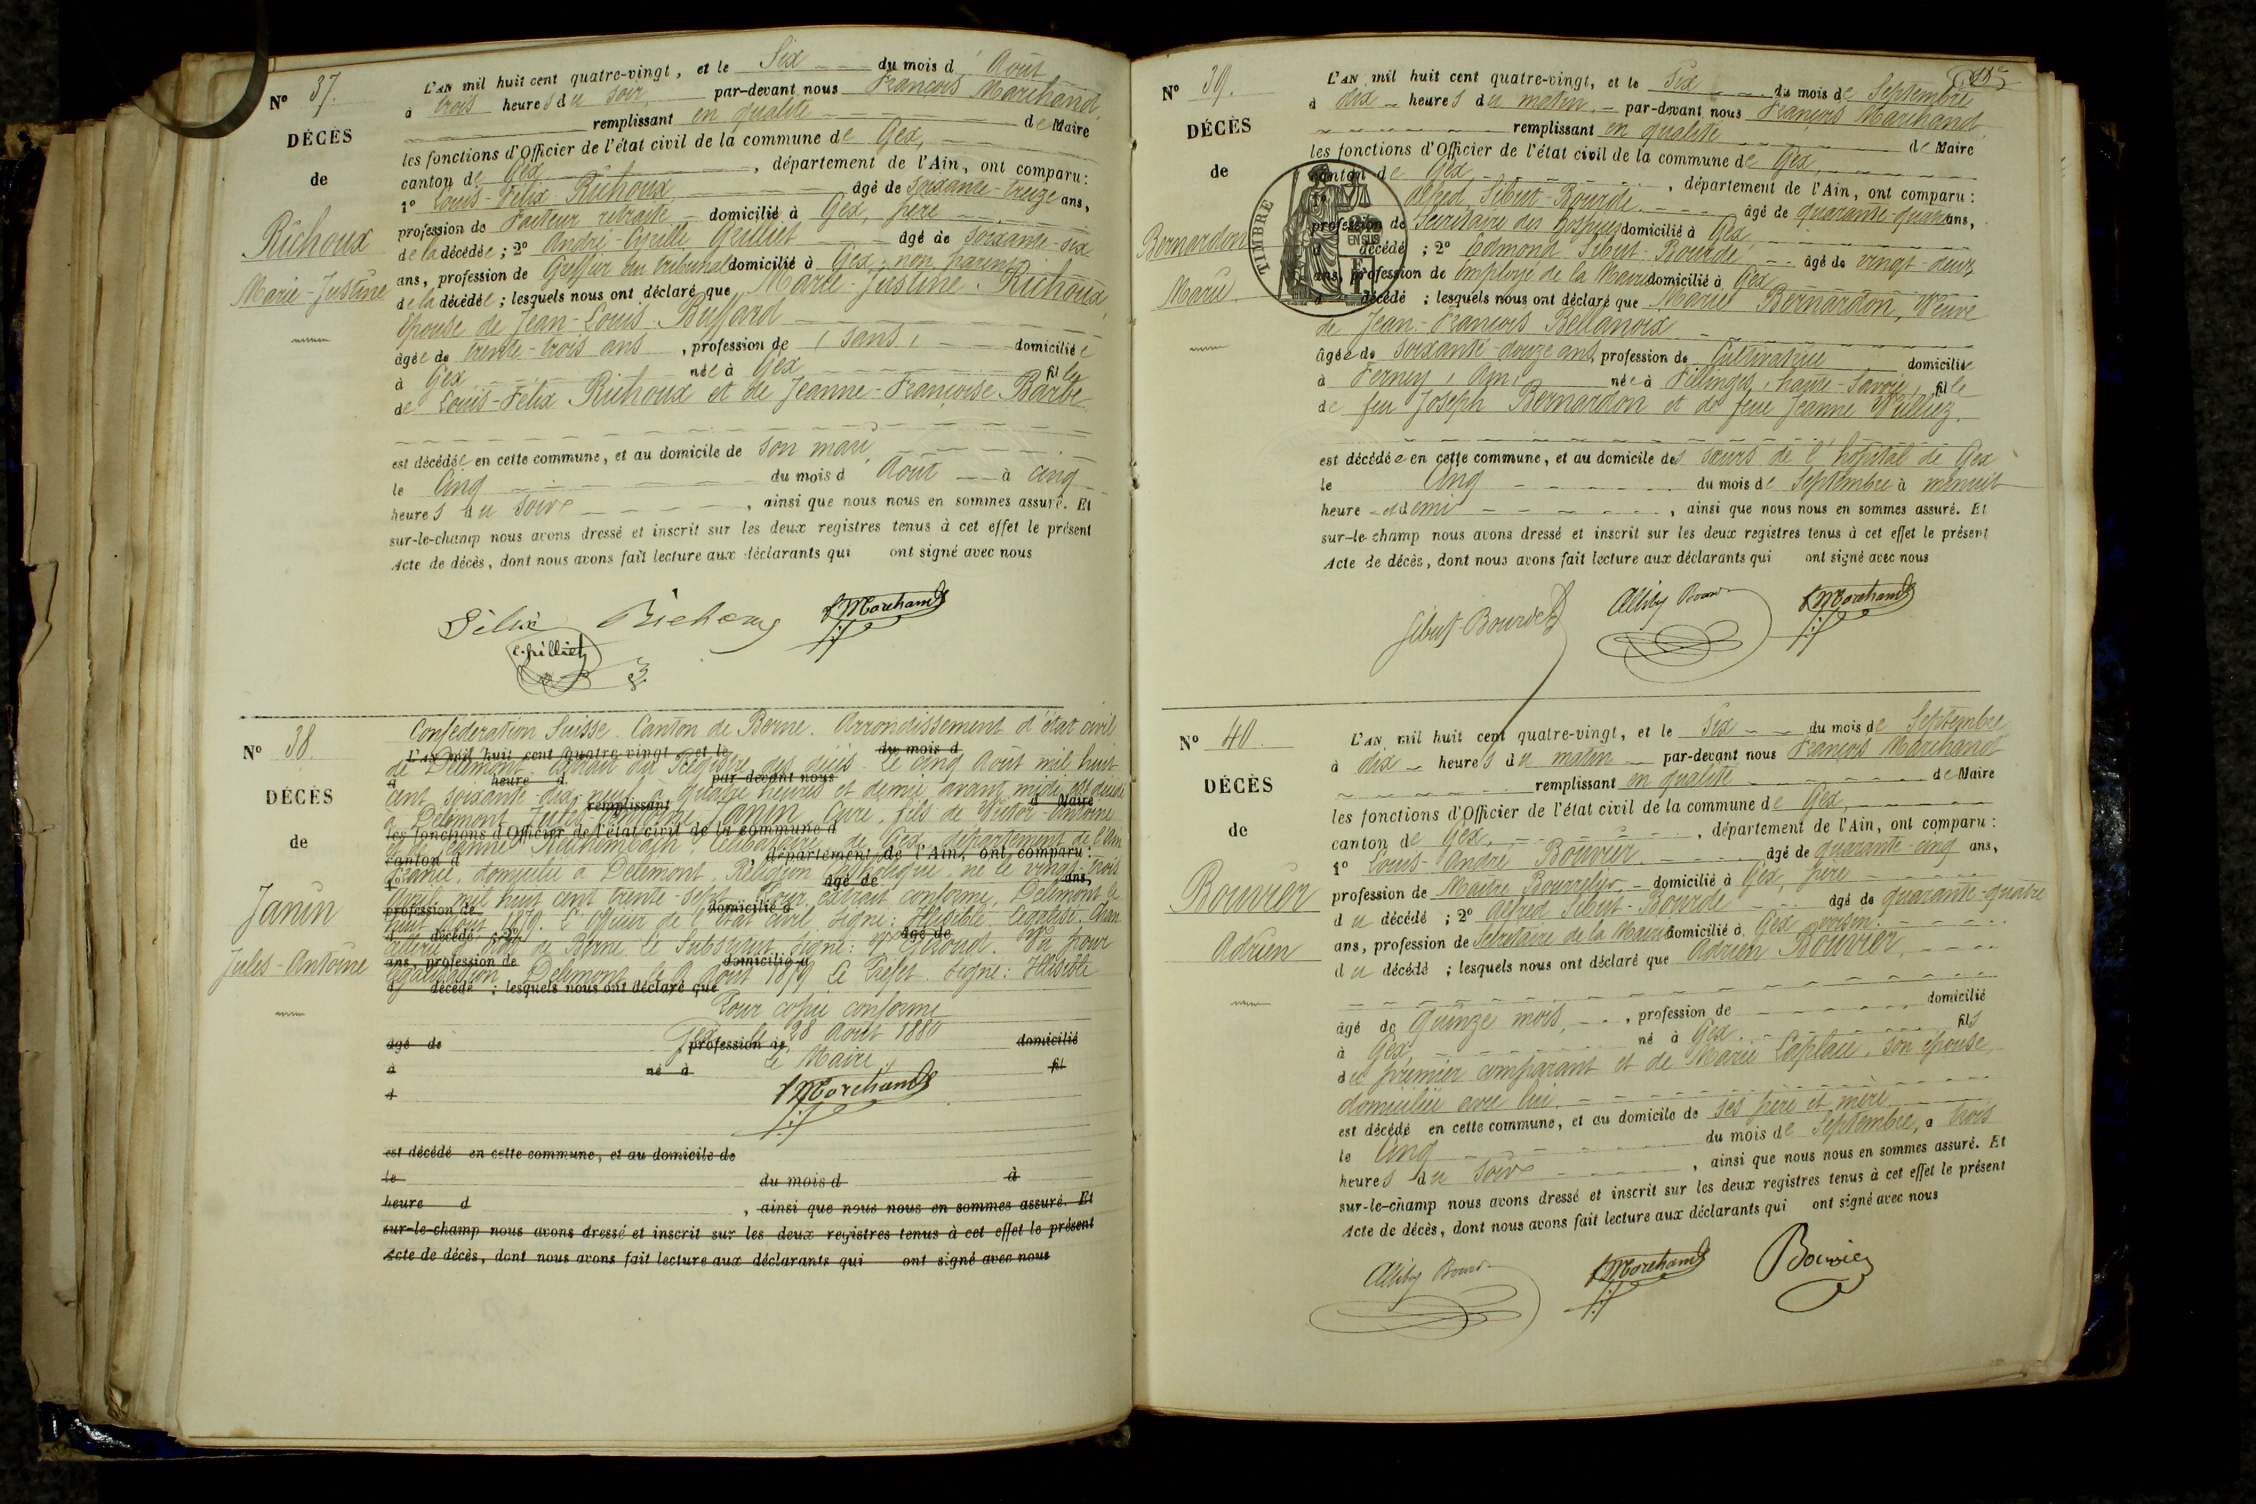 Nº 37.
DÉCÈS
de
Richoux
Marie-Justine
L'AN mil huit cent quatre-vingt, et le Six du mois d'Août
à trois heures du soir par-devant nous François Marchand,
remplissant en qualité de Maire
les fonctions d'Officier de l'état civil de la commune de Gex,
canton de Gex, département de l'Ain, ont comparu:
1º Louis-Félix Richoux âgé de soixante-treize ans,
profession de Facteur retraité domicilié à Gex, père
de la décédée; 2º André-Cyrille Grilliet âgé de soixante-six
ans, profession de Greffier du tribunal domicilié à Gex; non parent
de la décédée; lesquels nous ont déclaré que Marie-Justine Richoux,
épouse de Jean-Louis Buffard
âgée de trente-trois ans, profession de (sans) domiciliée
à Gex née à Gex fille
de Louis-Félix Richoux et de Jeanne-Françoise Barbe
est décédée en cette commune, et au domicile de son mari
le Cinq du mois d'Août à cinq
heures du soir, ainsi que nous nous en sommes assuré. Et
sur-le-champ nous avons dressé et inscrit sur les deux registres tenus à cet effet le présent
Acte de décès, dont nous avons fait lecture aux déclarants qui ont signé avec nous
Félix Richoux F Marchand
C. Grilliet
Nº 38.
DÉCÈS
de
Janin
Jules-Antoine
Confédération Suisse. Canton de Berne. Arrondissement d'état civil
L'AN mil huit cent quatre-vingt, et le du mois d
de Délémont. Extrait du Registre des décès. Le cinq Août mil huit
à heure d par-devant nous
cent soixante-dix-neuf à quatre heures et demie avant midi est décédé
remplissant d Maire
à Délémont Jules-Antoine Janin, Curé, fils de Victor-Antoine
les fonctions d'Officier de l'état civil de la commune d
et de Jeanne célibataire de Gex, département de l'Ain
canton d département de l'Ain, ont comparu:
France, domicilié à Délémont, Religion catholique né le vingt-trois
1º âgé de ans,
Avril mil huit cent trente-sept. Pour extrait conforme, Délémont le
profession de domicilié à
huit Août 1879. L'officier de l'état civil signé: Illisible. Légalisé. Chan
d décédé; 2º âgé de
cellerie d'état de Berne le Substitut, signé: Vu pour
ans, profession de domicilié à
légalisation Délémont le 9 Août 1879 Le Préfet. Signé: Illisible
d décédé; lesquels nous ont déclaré que
Pour copie conforme
Gex le 28 Août 1880
âgé de profession de domicilié
Le Maire,
à né à fil
F Marchand
d
est décédé en cette commune, et au domicile de
le du mois d à
heure d, ainsi que nous nous en sommes assuré. Et
sur-le-champ nous avons dressé et inscrit sur les deux registres tenus à cet effet le présent
Acte de décès, dont nous avons fait lecture aux déclarants qui ont signé avec nous
Nº 39.
DÉCÈS
de
Bernardon
Marie
TIMBRE
EN SUS
L'AN mil huit cent quatre-vingt, et le Six du mois de Septembre
à dix heures du matin par-devant nous François Marchand
remplissant en qualité de Maire
les fonctions d'Officier de l'état civil de la commune de Gex,
canton de Gex, département de l'Ain, ont comparu:
1º Alfred Sibut-Bourde âgé de quarante-quatre ans,
profession de Secrétaire des hospices domicilié à Gex,
d décédé; 2º Edmond Sibut-Bourde âgé de vingt-deux
ans, profession de Employé de la Mairie domicilié à Gex
d décédé; lesquels nous ont déclaré que Marie Bernardon, Veuve
de Jean-François Bellanoix
âgée de soixante-douze ans, profession de Cultivatrice domiciliée
à Ferney (Ain) née à Fillinges (haute-Savoie) fille
de feu Joseph Bernardon et de feue Jeanne Vulliez.
est décédée en cette commune, et au domicile des sœurs de l'hôpital de Gex
le Cinq du mois de Septembre à minuit
heure et demi, ainsi que nous nous en sommes assuré. Et
sur-le-champ nous avons dressé et inscrit sur les deux registres tenus à cet effet le présent
Acte de décès, dont nous avons fait lecture aux déclarants qui ont signé avec nous
Sibut-Bourde F Marchand
Nº 40.
DÉCÈS
de
Bouvier
Adrien
L'AN mil huit cent quatre-vingt, et le Six du mois de Septembre
à dix heures du matin par-devant nous François Marchand
remplissant en qualité de Maire
les fonctions d'Officier de l'état civil de la commune de Gex,
canton de Gex, département de l'Ain, ont comparu:
1º Louis-André Bouvier âgé de quarante-cinq ans,
profession de Maître Bourrelier domicilié à Gex, père
du décédé; 2º Alfred Sibut-Bourde âgé de quarante-quatre
ans, profession de Secrétaire de la Mairie domicilié à Gex voisin
du décédé; lesquels nous ont déclaré que Adrien Bouvier,
âgé de quinze mois, profession de domicilié
à Gex, né à Gex. fils
du premier comparant et de Marie Laplace, son épouse
domiciliée avec lui.
est décédé en cette commune, et au domicile de ses père et mère
le Cinq du mois de Septembre, à trois
heures du soir, ainsi que nous nous en sommes assuré. Et
sur-le-champ nous avons dressé et inscrit sur les deux registres tenus à cet effet le présent
Acte de décès, dont nous avons fait lecture aux déclarants qui ont signé avec nous
F Marchand Bouvier